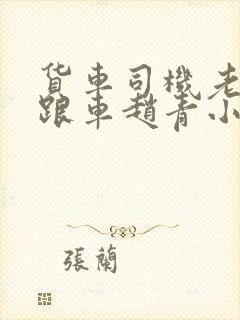 貨車司機老
跟車趙青小
張蘭